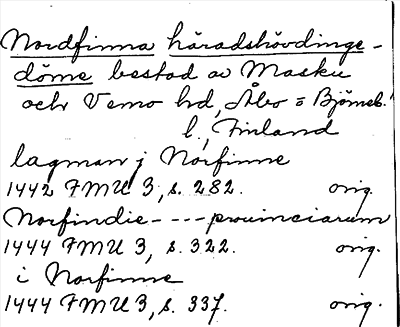 Nordfinna häradshövdinge-
döme bestod av Masku
och Vemo hd, Åbo = Björneb.
l., Finland
lagman j Norfinne
1442 FMU 3, s. 282. orig.
Norfindie - - - - prouinciarum
1444 FMU 3, s. 322. orig.
i Norfinne
1444 FMU 3, s. 337. orig.